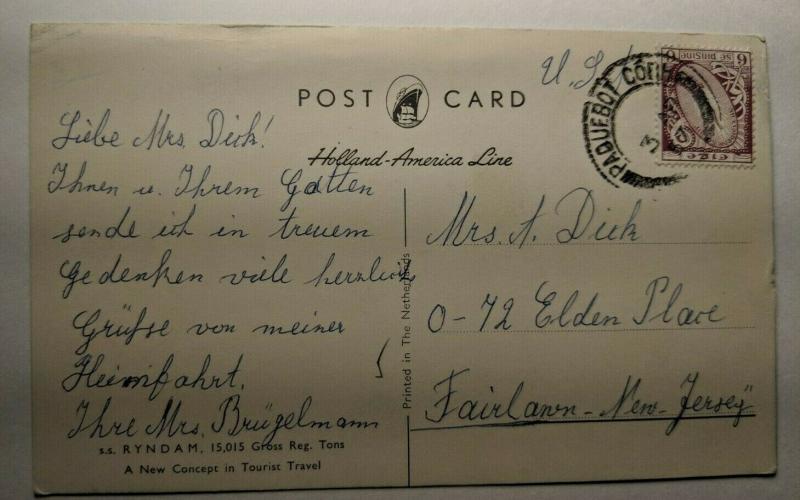 POST CARD
Holland-America Line
U.S.A
Liebe Mrs. Dick!
Ihnen u. Ihrem Gatten
sende ich in treuem
Gedenken viele herzlich
Grüfse von meiner
Heimfahrt.
Ihre Mrs. Brügelmann
s.s. RYNDAM, 15,015 Gross Reg. Tons
A New Concept in Tourist Travel
Printed in The Netherlands
PAQUEBOT CÓḂH
6 se pinsine 6
eire
Mrs. A. Dick
0-72 Elden Place
Fairlawn - New-Jersey